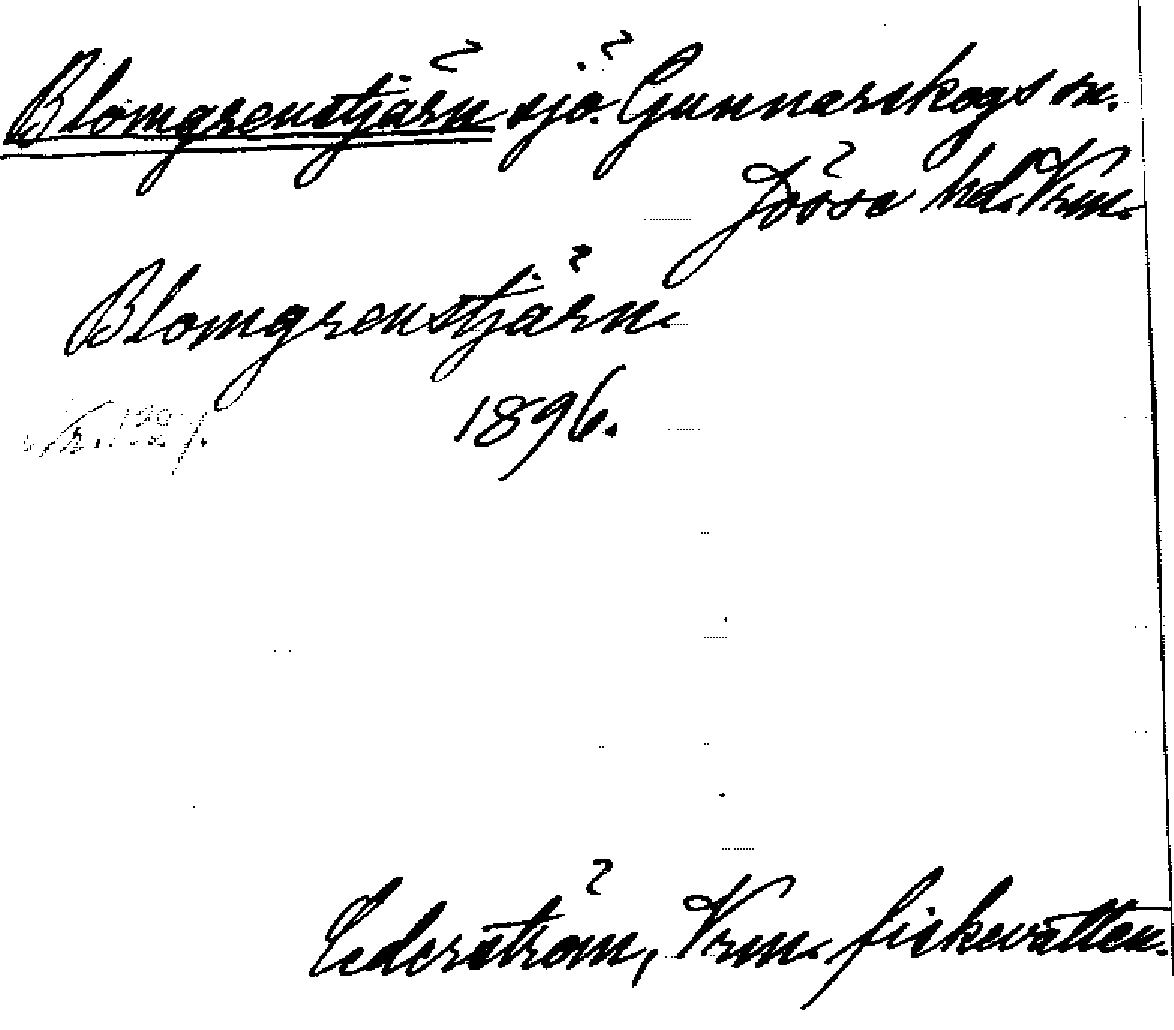 Blomgrenstjärn sjö. Gunnarskogs sn.
Jösse hd. Vrm.
Blomgrenstjärn.
1896.
Cederström, Vrm. fiskevatten.